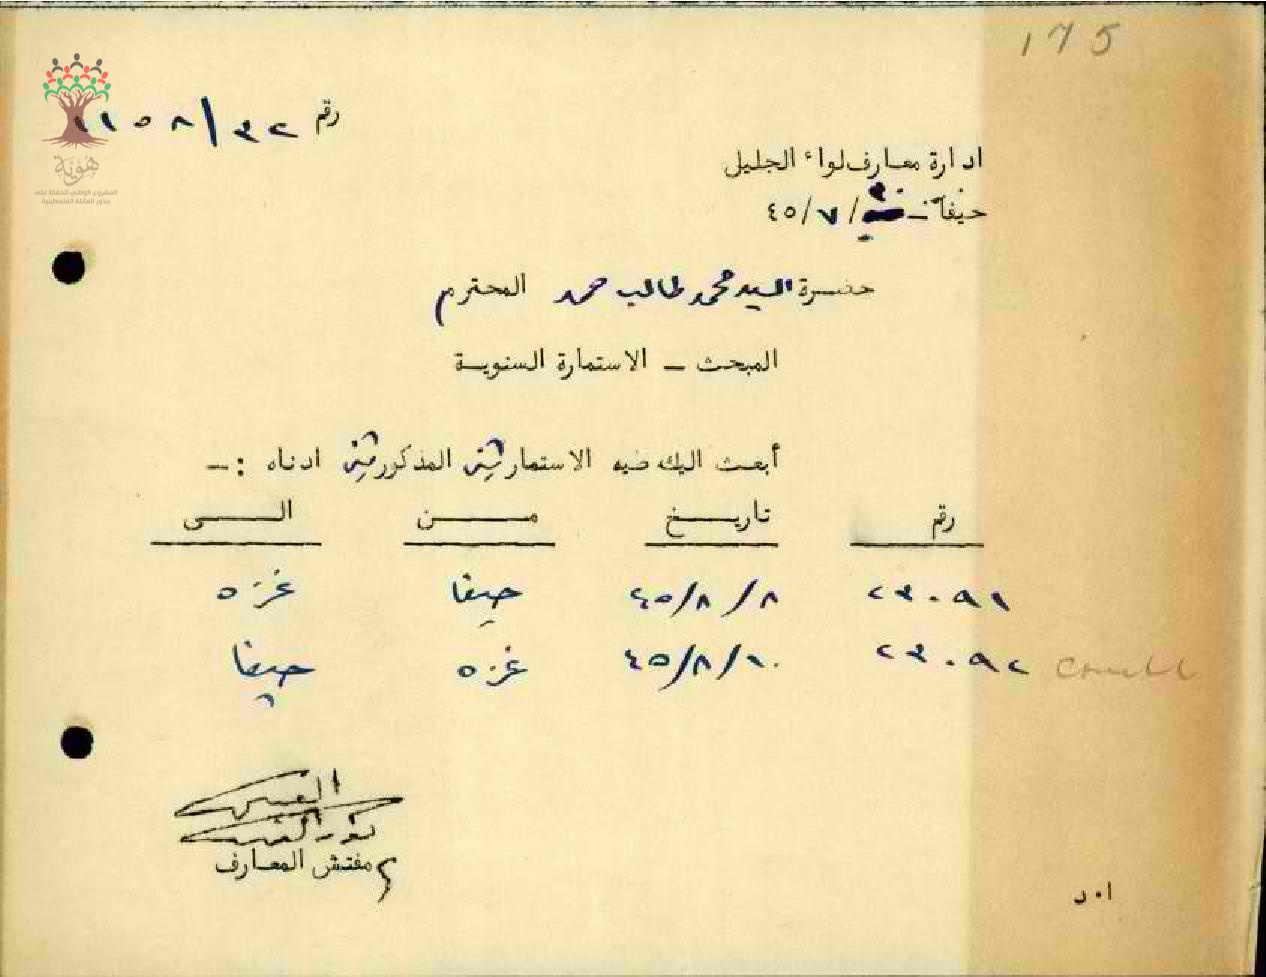 175
رقم ٣٢/١١٥٨
هوية
المشروع الوطني للحفاظ على
جذور العائلة الفلسطينية
ادارة معارف لواء الجليل
حيفا - /٧/٤٥
حضرة السيد محمد طالب حمد المحترم
المبحث - الاستمارة السنوية
أبعث اليك طيه الاستمارتين المذكورتين ادناه :-
رقم تاريخ من الى
٢٣٠٩١ ٨/٨/٤٥ حيفا غزه
٢٣٠٩٢ ١٠/٨/٤٥ غزه حيفا
مفتش المعارف
ا٠د